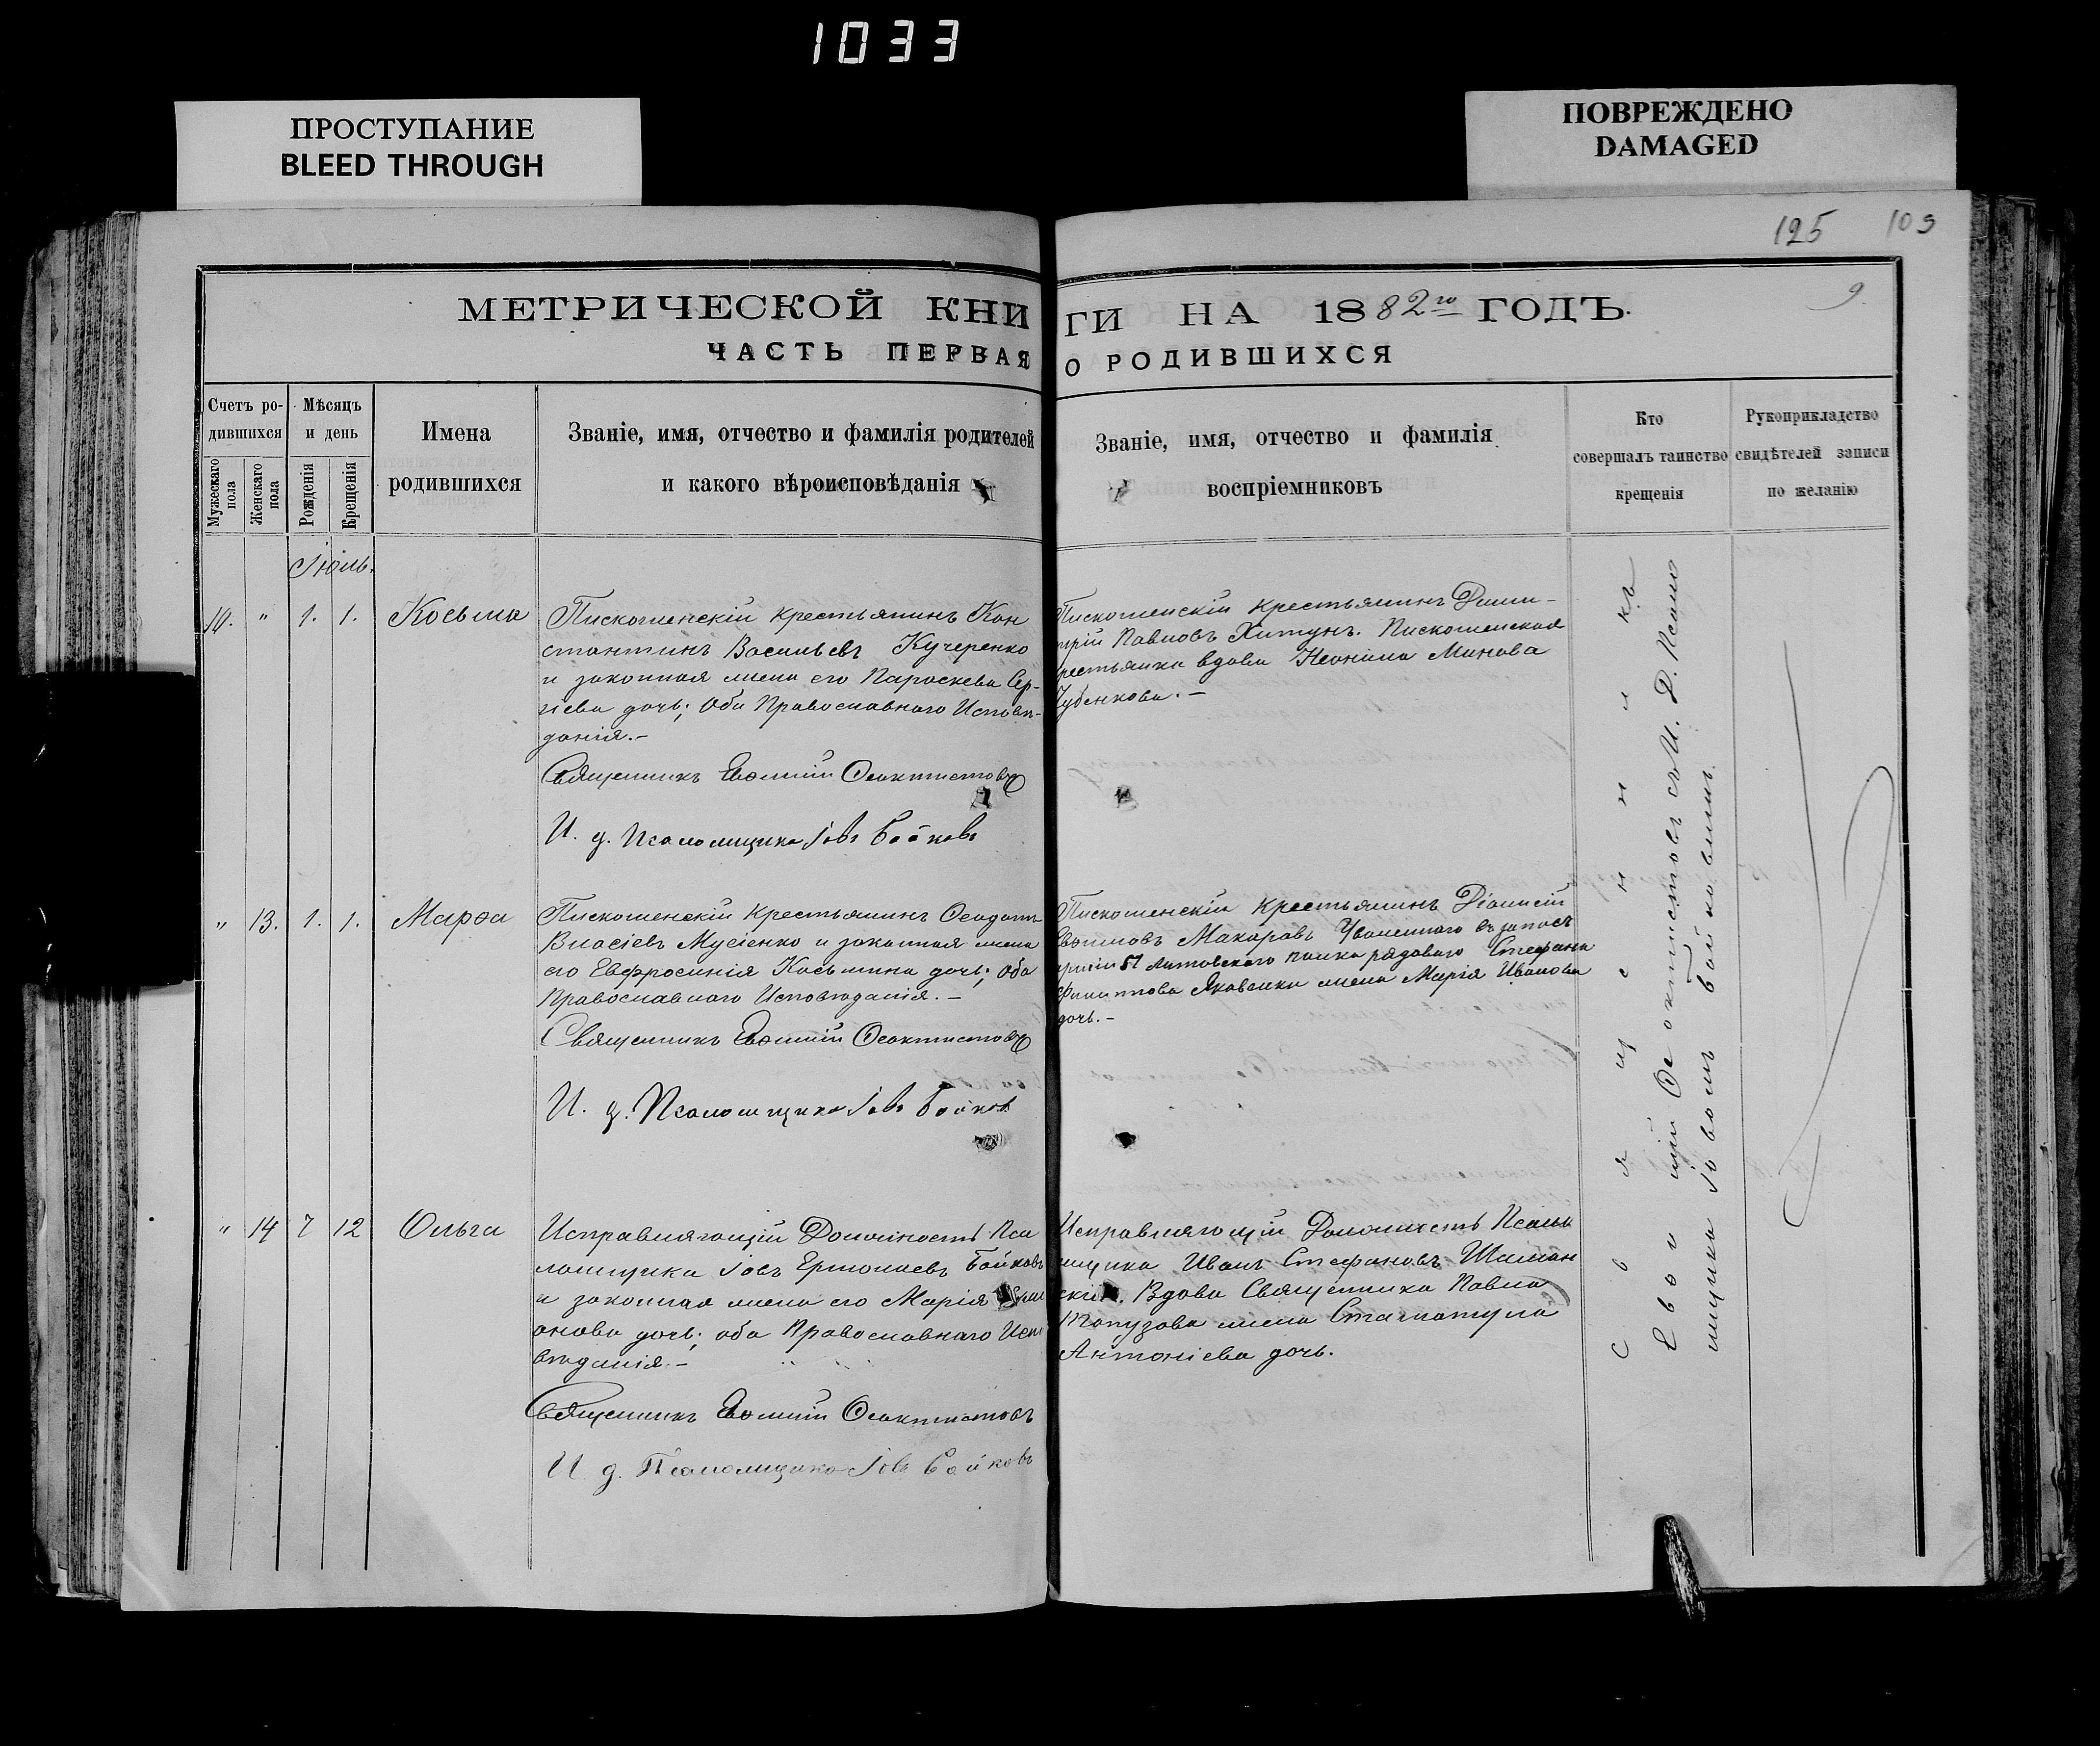 1033
ПРОСТУПАНИЕ
BLEED THROUGH
ПОВРЕЖДЕНО
DAMAGED
125 109
9.
МЕТРИЧЕСКОЙ КНИГИ НА 1882го ГОДЪ.
ЧАСТЬ ПЕРВАЯ О РОДИВШИХСЯ
Счетъ ро-
дившихся
Мужескаго пола
Женскаго пола
Мѣсяцъ
и день
Рожденія
Крещенія
Имена
родившихся
Званіе, имя, отчество и фамилія родителей
и какого вѣроисповѣданія
Званіе, имя, отчество и фамилія
воспріемниковъ
Кто
совершалъ таинство
крещенія
Рукоприкладство
свидѣтелей записи
по желанію
Іюль.
10. " 1. 1. Косьма
Пискошенскій крестьянинъ Кон
стантинъ Васильевъ Кучеренко
и законная жена его Параскева Сер-
гіева дочь; Оба Православнаго Исповѣ-
данія.-
Священникъ Евѳимій Ѳеоктистовъ
И. д. Псаломщика Іовъ Бойковъ
Пискошенскій крестьянинъ Дими-
трій Павловъ Хитунъ. Пискошенская
крестьянка вдова Неонила Минова
Чубенкова.-
" 13. 1. 1. Марѳа
Пискошенскій Крестьянинъ Ѳеодотъ
Власіевъ Мусіенко и законная жена
его Евфросинія Косьмина дочь; оба
Православнаго Исповѣданія.-
Священникъ Евѳимій Ѳеоктистовъ
И. д. Псаломщика Іовъ Бойковъ
Пискошенскій Крестьянинъ Діонисій
Евѳимовъ Макаровъ Уволеннаго въ запасъ
арміи 51 Литовскаго полка рядоваго Стефана
Филиппова Яковенки жена Марія Иванова
дочь.-
" 14 7 12 Ольга
Исправляющій Должность Пса
ломщика Іовъ Ермолаевъ Бойковъ
и законная жена его Марія
онова дочь; оба Православнаго Испо
вѣданія.-
Священникъ Евѳимій Ѳеоктистовъ
И. д. Псаломщика Іовъ Бойковъ
Исправляющій Должность Псало
мщика Иванъ Стефановъ Шиман
скій. Вдова Священника Павла
Топузова жена Стаматула
Антоніева дочь.
Священникъ
Евѳимій Ѳеоктистовъ съ И. Д. Псало
мщика Іовомъ Бойковымъ.